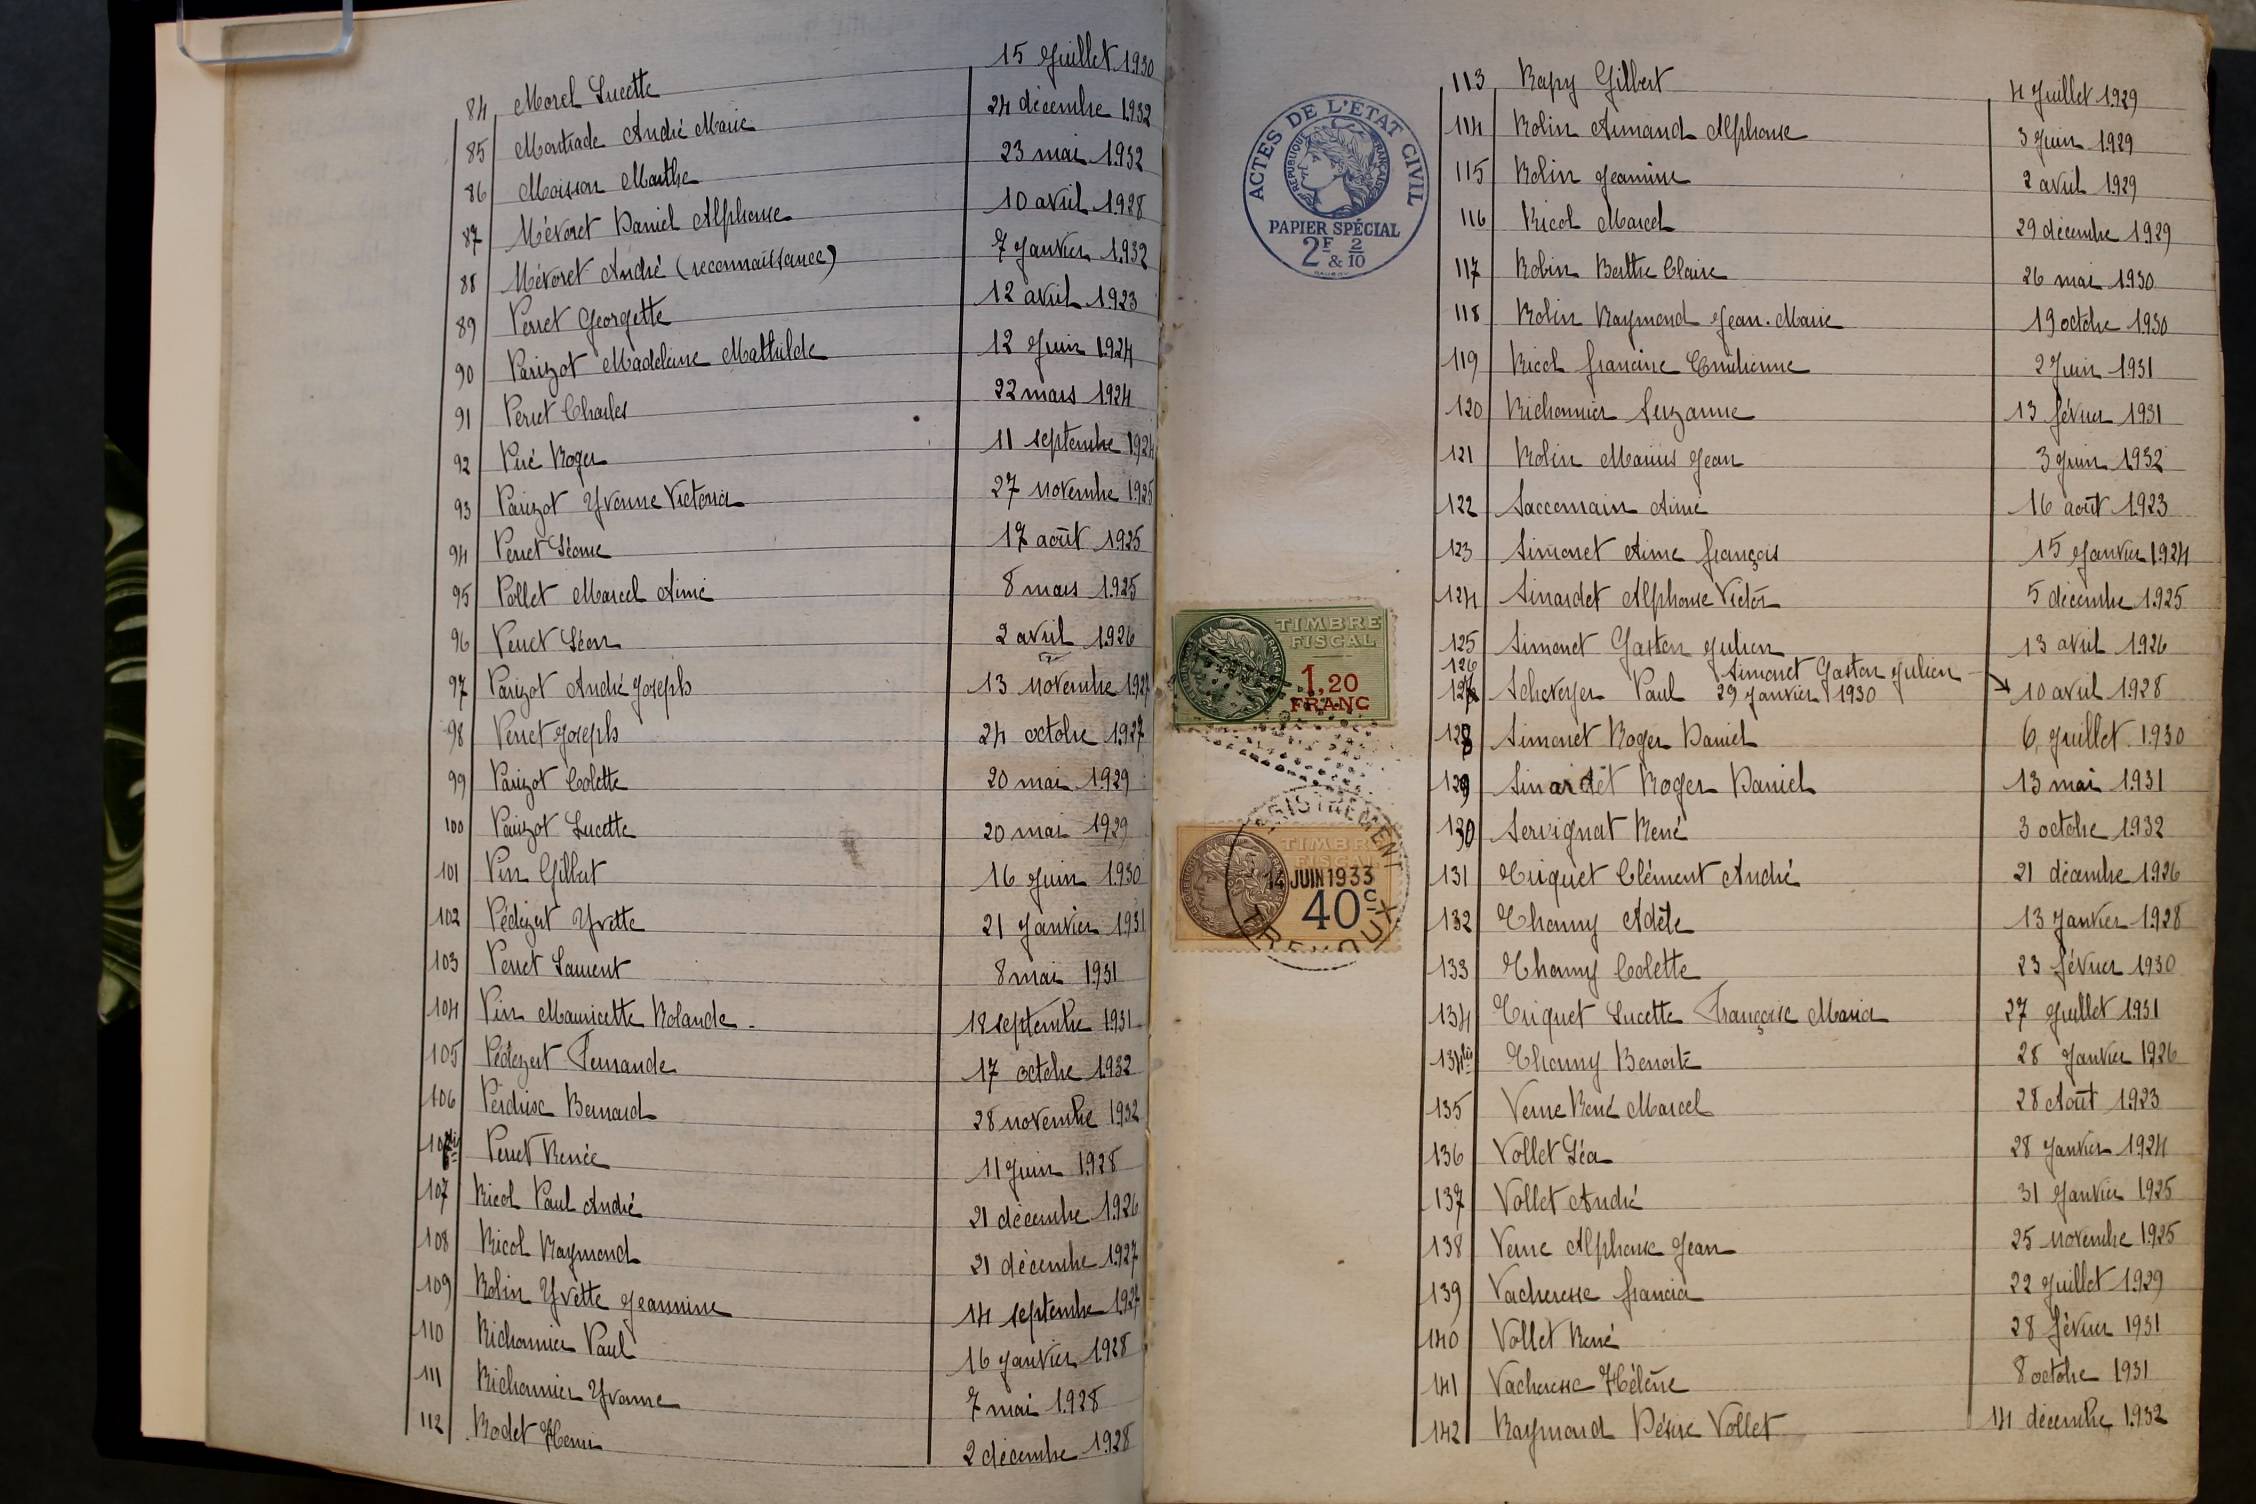 84 Morel Lucette 15 Juillet 1930
85 Montrade André Marie 24 décembre 1932
86 Moisson Marthe 23 mai 1932
87 Mévoret Daniel Alphonse 10 avril 1928
88 Mévoret André (reconnaissance) 7 Janvier 1932
89 Perret Georgette 12 avril 1923
90 Parizot Madeleine Mathilde 12 Juin 1924
91 Perret Charles 22 mars 1924
92 Piré Roger 11 septembre 1924
93 Parizot Yvonne Victoria 27 novembre 1925
94 Perret Léone 17 août 1925
95 Pollet Marcel Aimé 8 mars 1925
96 Perret Léon 2 avril 1926
97 Parizot André Joseph 13 novembre 1927
98 Perret Joseph 24 octobre 1927
99 Parizot Colette 20 mai 1929
100 Parizot Lucette 20 mai 1929
101 Pin Gilbert 16 Juin 1930
102 Pédezert Yvette 21 Janvier 1931
103 Perret Laurent 8 mai 1931
104 Pin Mauricette Rolande 18 septembre 1931
105 Pédezert Fernande 17 octobre 1932
106 Perdrix Bernard 28 novembre 1932
106bis Perret Renée 11 Juin 1928
107 Ricol Paul André 21 décembre 1926
108 Ricol Raymond 21 décembre 1927
109 Robin Yvette Jeannine 14 septembre 1927
110 Richonnier Paul 16 Janvier 1928
111 Richonnier Yvonne 7 mai 1928
112 Rodet Henri 2 décembre 1928
ACTES DE L'ÉTAT CIVIL
RÉPUBLIQUE FRANÇAISE
PAPIER SPÉCIAL
2F & 2/10
TIMBRE
FISCAL
1,20
FRANC
TIMBRE
FISCAL
14 JUIN 1933
40c
113 Rapy Gilbert 4 Juillet 1929
114 Robin Armand Alphonse 3 Juin 1929
115 Robin Jeannine 2 avril 1929
116 Ricol Marcel 29 décembre 1929
117 Robin Berthe Claire 26 mai 1930
118 Robin Raymond Jean-Marie 19 octobre 1930
119 Ricol Francine Emilienne 2 Juin 1931
120 Richonnier Suzanne 13 février 1931
121 Robin Marius Jean 3 Juin 1932
122 Saccomain Aimé 16 août 1923
123 Simonet Aimé François 15 Janvier 1924
124 Sinardet Alphonse Victor 5 décembre 1925
125 Simonet Gaston Julien 13 avril 1926
126 Simonet Gaston Julien 10 avril 1928
127 Scheveyer Paul 29 Janvier 1930
128 Simonet Roger Daniel 6 Juillet 1930
129 Sinardet Roger Daniel 13 mai 1931
130 Servignat René 3 octobre 1932
131 Triquet Clément André 21 décembre 1926
132 Thomy Adèle 13 Janvier 1928
133 Thomy Colette 23 février 1930
134 Triquet Lucette Françoise Maria 27 Juillet 1931
134bis Thomy Benoite 28 Janvier 1926
135 Verne René Marcel 28 Août 1923
136 Vollet Léa 28 Janvier 1924
137 Vollet André 31 Janvier 1925
138 Verne Alphonse Jean 25 novembre 1925
139 Vacheresse Francia 22 Juillet 1929
140 Vollet René 28 février 1931
141 Vacheresse Hélène 8 octobre 1931
142 Raymond Désiré Vollet 14 décembre 1932